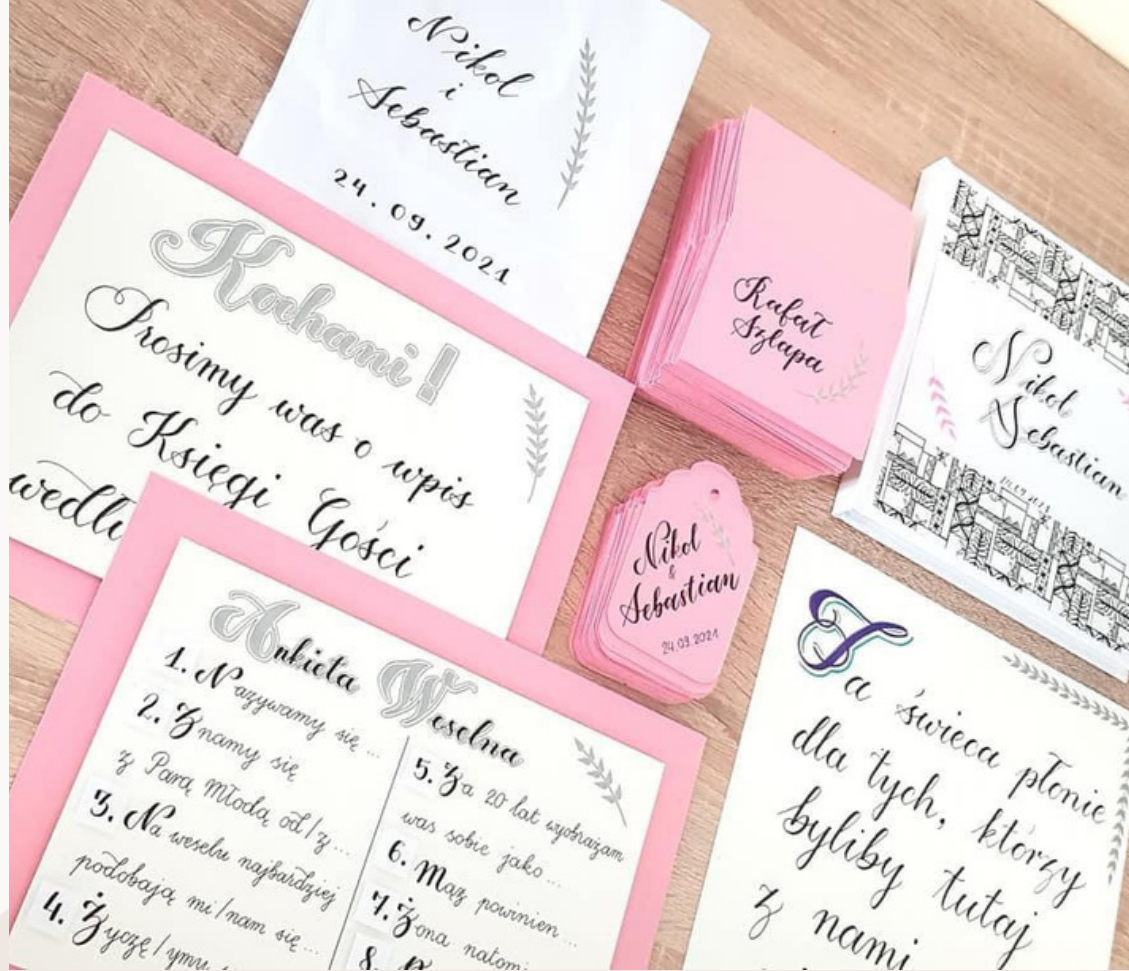 Nikol
i
Sebastian
24.09.2021
Kochani!
Prosimy was o wpis
do Księgi Gości
Rafał
Szlapa
Nikol
Sebastian
Nikol
&
Sebastian
24.09.2021
Ankieta Weselna
1. Nazywamy się...
2. Znamy się
z Parą Młodą od/z...
3. Na weselu najbardziej
podobają mi/nam się...
4. Życzę/ymy
5. Za 20 lat wyobrażam
was sobie jako...
6. Mąż powinien...
7. Żona
8.
Ta świeca płonie
dla tych, którzy
byliby tutaj
z nami